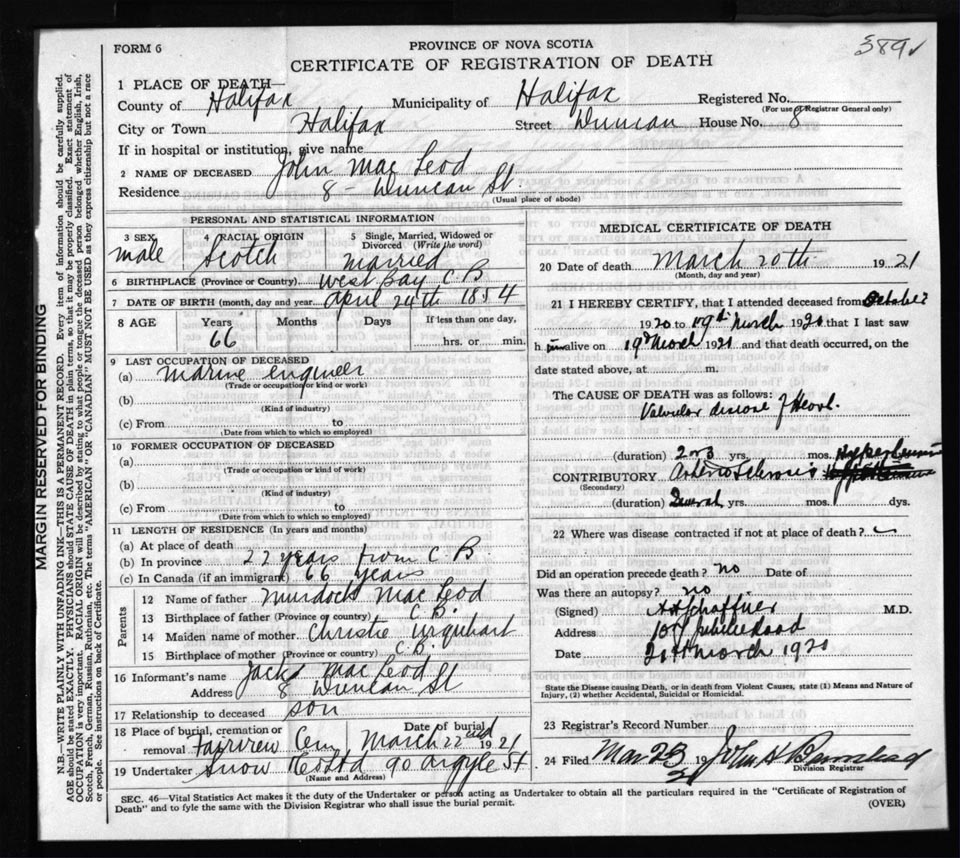 FORM 6
PROVINCE OF NOVA SCOTIA
389
CERTIFICATE OF REGISTRATION OF DEATH
1 PLACE OF DEATH—
County of Halifax Municipality of Halifax Registered No.
(For use of Registrar General only)
City or Town Halifax Street Duncan House No. 8
If in hospital or institution, give name
2 NAME OF DECEASED John Mac Leod
Residence 8 - Duncan St.
(Usual place of abode)
PERSONAL AND STATISTICAL INFORMATION
3 SEX 4 RACIAL ORIGIN 5 Single, Married, Widowed or Divorced (Write the word)
male Scotch married
6 BIRTHPLACE (Province or Country) West Bay C B
7 DATE OF BIRTH (month, day and year) April 24th 1854
8 AGE Years Months Days If less than one day,
66 hrs. or min.
9 LAST OCCUPATION OF DECEASED
(a) Marine engineer
(Trade or occupation or kind or work)
(b)
(Kind of industry)
(c) From to
(Date from which to which so employed)
10 FORMER OCCUPATION OF DECEASED
(a)
(Trade or occupation or kind of work)
(b)
(Kind of industry)
(c) From to
(Date from which to which so employed)
11 LENGTH OF RESIDENCE (In years and months)
(a) At place of death
(b) In province 22 years from C B
(c) In Canada (if an immigrant) 66 years
Parents
12 Name of father Murdoch Mac Leod
13 Birthplace of father (Province or country) C B.
14 Maiden name of mother Christie Urquhart
15 Birthplace of mother (Province or country) C.B.
16 Informant's name Jack Mac Leod
Address 8 Duncan St
17 Relationship to deceased son
18 Place of burial, cremation or removal Fairview Cem Date of burial March 22nd 1921
19 Undertaker Snow & Co Ltd 90 Argyle St
(Name and Address)
MEDICAL CERTIFICATE OF DEATH
20 Date of death March 20th 1921
(Month, day and year)
21 I HEREBY CERTIFY, that I attended deceased from October
1920 to 19th March 1920 that I last saw
h im alive on 19th March 1920 and that death occurred, on the
date stated above, at m.
The CAUSE OF DEATH was as follows:
Valvular disease of Heart.
(duration) 2 or 3 yrs. mos. Hypertension
CONTRIBUTORY Arterio Sclerosis
(Secondary)
(duration) Several yrs. mos. dys.
22 Where was disease contracted if not at place of death?
Did an operation precede death? no Date of
Was there an autopsy? no
(Signed) A A Schaffner M.D.
Address
Date 20th March 1920
State the Disease causing Death, or in death from Violent Causes, state (1) Means and Nature of
Injury, (2) whether Accidental, Suicidal or Homicidal.
23 Registrar's Record Number
24 Filed Mar 23 19 21 John H Barnstead
Division Registrar
SEC. 46—Vital Statistics Act makes it the duty of the Undertaker or person acting as Undertaker to obtain all the particulars required in the "Certificate of Registration of
Death" and to fyle the same with the Division Registrar who shall issue the burial permit.
(OVER)
MARGIN RESERVED FOR BINDING
N.B.—WRITE PLAINLY WITH UNFADING INK—THIS IS A PERMANENT RECORD. Every item of information should be carefully supplied.
AGE should be stated EXACTLY. PHYSICIANS should STATE CAUSE OF DEATH in plain terms, so that it may be properly classified. Exact statement of
OCCUPATION is very important. RACIAL ORIGIN will be described by stating to what people or tongue the deceased person belonged whether English, Irish,
Scotch, French, German, Russian, Ruthenian, etc. The terms "AMERICAN" or "CANADIAN" MUST NOT BE USED as they express citizenship but not a race
or people. See instructions on back of Certificate.